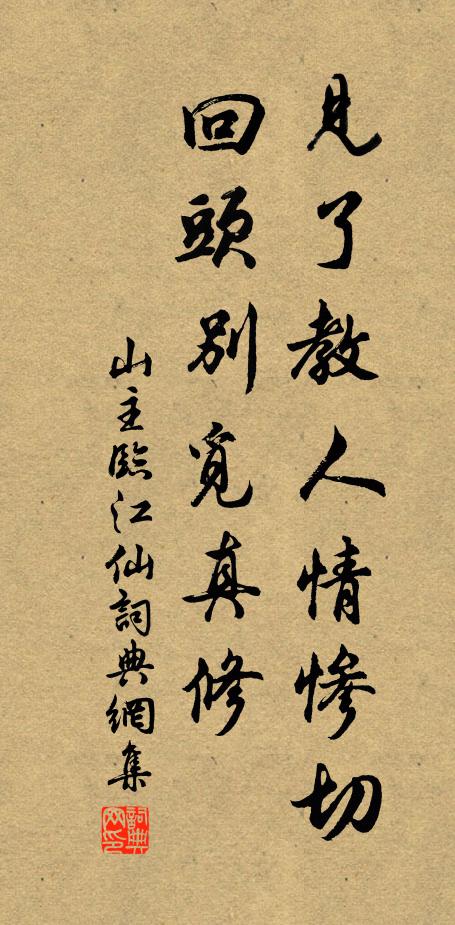 見了教人情慘切
回頭別覓真修
山主臨江仙詞典網集
詞典網印